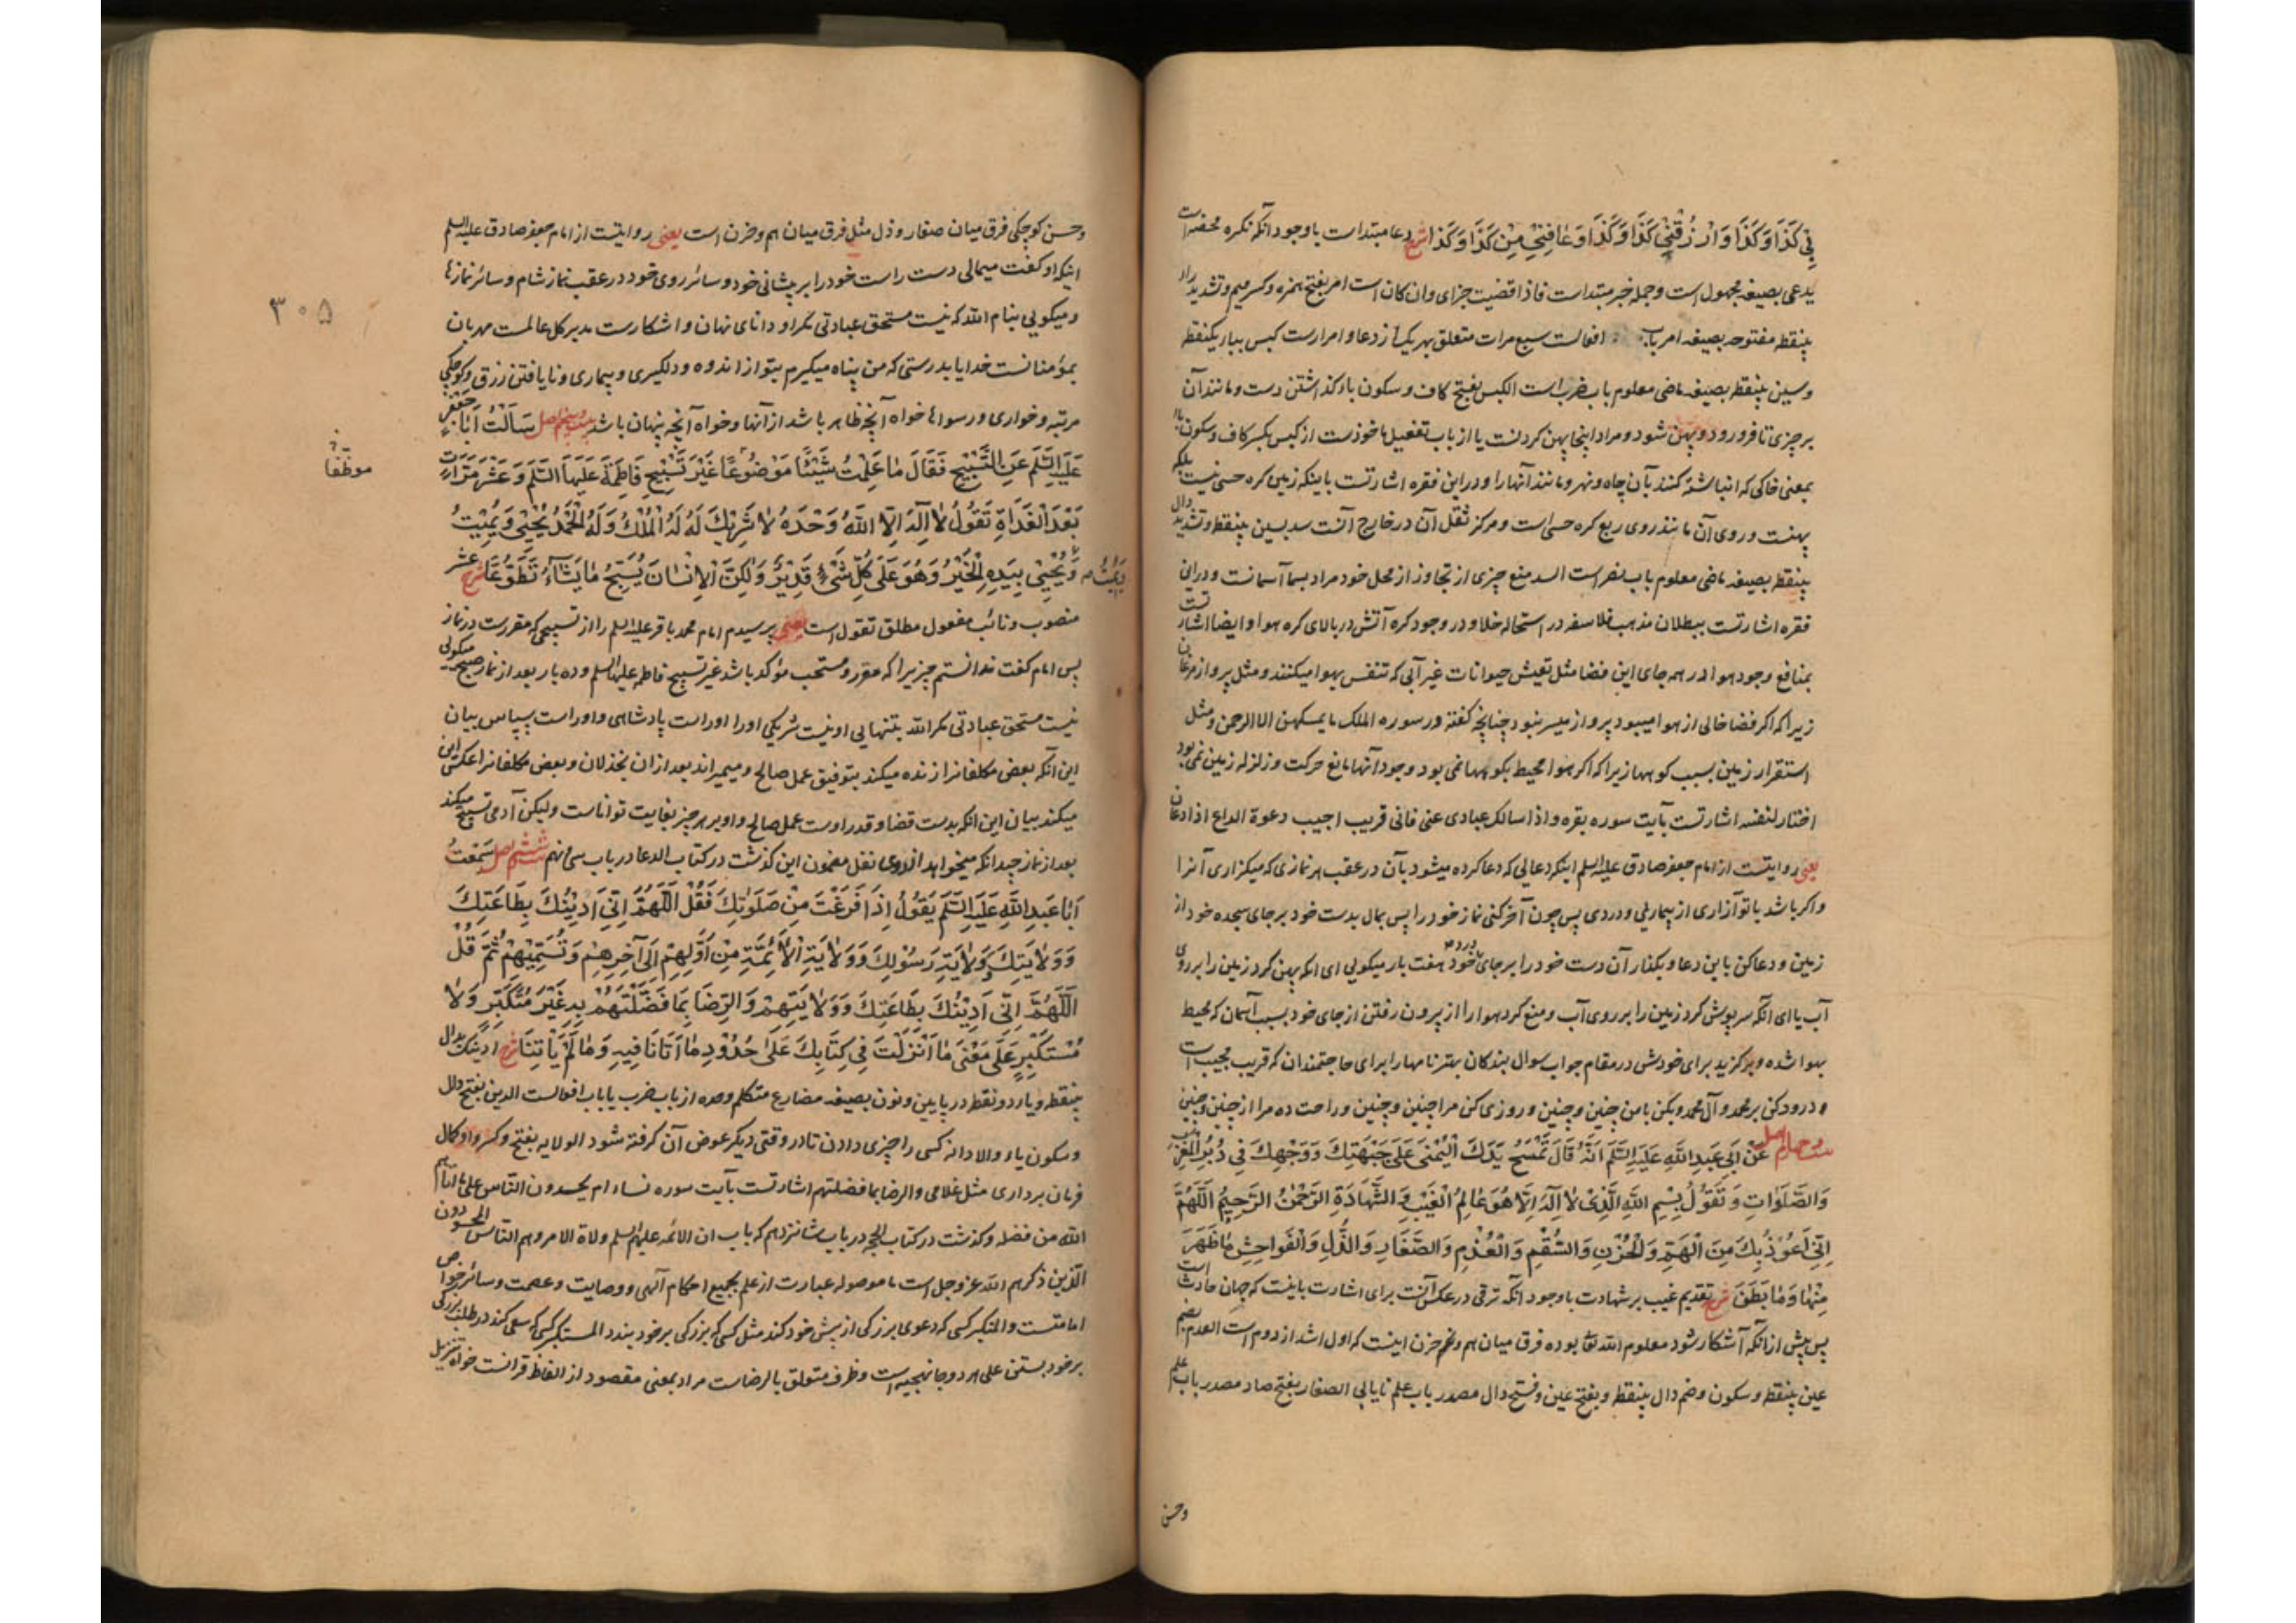 بِي كَذَا وَكَذَا وَارْزُقْنِي كَذَا وَكَذَا وَعَافِنِي مِنْ كَذَا وَكَذَا شرح دعا مبتداست با وجود آنکه نکره محضه است
یدعی بصیغه مجهول است و جمله خبر مبتداست فاذا قضیت جزای وان کان است امر بفتح همزه و کسر میم و تشدید راء
بینقطه مفتوحه بصیغه امر باب افعالست سبع مرات متعلق بهر یک از دعا و امرارست کبس بباء یکنقطه
وسین بینقطه بصیغه ماضی معلوم باب ضرب است الکبس بفتح کاف و سکون باء گذاشتن دست و مانند آن
بر چیزی تا فرو رود و پهن شود و مراد اینجا پهن کردنست یا از باب تفعیل ماخوذست از کبس بکسر کاف و سکون باء
بمعنی خاکی که انباشته کنند بآن چاه و نهر و مانند آنها را و در این فقره اشارتست باینکه زمین کره حسی نیست بلکه
پهنست و روی آن مانند روی ربع کره حسی است و مرکز ثقل آن در خارج آنست سد بسین بینقطه و تشدید دال
بینقطه بصیغه ماضی معلوم باب نصر است السد منع چیزی از تجاوز از محل خود مراد بسما آسمانست و در این
فقره اشارتست ببطلان مذهب فلاسفه در استحاله خلا و در وجود کره آتش در بالای کره هوا و ایضا اشارتست
بمنافع وجود هوا در همه جای این فضا مثل تعیش حیوانات غیر آبی که تنفس بهوا میکنند و مثل پرواز مرغان
زیرا که اگر فضا خالی از هوا میبود پرواز میسر نبود چنانچه گفته در سوره الملک ما یمسکهن الا الرحمن و مثل
استقرار زمین بسبب کوهها زیرا که اگر هوا محیط بکوهها نمی بود وجود آنها مانع حرکت و زلزله زمین نمی بود
اختار لنفسه اشارتست بآیت سوره بقره و اذا سالک عبادی عنی فانی قریب اجیب دعوة الداع اذا دعان
یعنی روایتست از امام جعفر صادق علیه السلم اینکه دعایی که دعا کرده میشود بآن در عقب هر نمازی که میگزاری آنرا
و اگر باشد با تو آزاری از بیماریی و دردی پس چون آخر کنی نماز خود را پس بمال بدست خود بر جای سجده خود از
زمین و دعا کن باین دعا و بگذار آن دست خود را بر جای درد خود هفت بار میگویی ای آنکه پهن کرد زمین را بر روی
آب یا ای آنکه سرپوش کرد زمین را بر روی آب و منع کرد هوا را از بیرون رفتن از جای خود بسبب آسمان که محیط
بهوا شده و برگزید برای خودش در مقام جواب سوال بندگان بهترنامها را برای حاجتمندان که قریب مجیب است
و درود کن بر محمد و آل محمد و بکن با من چنین و چنین و روزی کن مرا چنین و چنین و راحت ده مرا از چنین و چنین
بیست و چهارم اصل عَنْ أَبِي عَبْدِ اللَّهِ عَلَيْهِ السَّلَم أَنَّهُ قَالَ تَمْسَحُ يَدَكَ الْيُمْنَى عَلَى جَبْهَتِكَ وَوَجْهِكَ فِي دُبُرِ الْمَغْرِبِ
وَالصَّلَوَاتِ وَتَقُولُ بِسْمِ اللَّهِ الَّذِي لَا إِلَهَ إِلَّا هُوَ عَالِمُ الْغَيْبِ وَالشَّهَادَةِ الرَّحْمَنُ الرَّحِيمُ اللَّهُمَّ
إِنِّي أَعُوذُ بِكَ مِنَ الْهَمِّ وَالْحُزْنِ وَالسُّقْمِ وَالْعُدْمِ وَالصَّغَارِ وَالذُّلِّ وَالْفَوَاحِشِ مَا ظَهَرَ
مِنْهَا وَمَا بَطَنَ شرح تقدیم غیب بر شهادت با وجود آنکه ترقی در عکس آنست برای اشارت باینست که جهان حادث است
پس پیش از آنکه آشکار شود معلوم الله تعا بوده فرق میان هم و حزن اینست که اول اشد از دوم است العدم بضم
عین بینقطه و سکون و ضم دال بینقطه و بفتح عین و فتح دال مصدر باب علم نایابی الصغار بفتح صاد مصدر باب علم
وحسن
وحسن کوچکی فرق میان صغار و ذل مثل فرق میان هم و حزن است یعنی روایتست از امام جعفر صادق علیه السلم
اینکه او گفت میمالی دست راست خود را بر پیشانی خود و سائر روی خود در عقب نماز شام و سائر نمازها
و میگویی بنام الله که نیست مستحق عبادتی مگر او دانای نهان و اشکارست مدبر کل عالمست مهربان
بمؤمنانست خدایا بدرستی که من پناه میگیرم بتو از اندوه و دلگیری و بیماری و نایافتن رزق و کوچکی
مرتبه و خواری و رسوائی خواه آنچه ظاهر باشد از آنها و خواه آنچه پنهان باشد بیست و پنجم اصل سَأَلْتُ أَبَا جَعْفَرٍ
عَلَيْهِ السَّلَم عَنِ التَّسْبِيحِ فَقَالَ مَا عَلِمْتُ شَيْئًا مَوْضُوعًا غَيْرَ تَسْبِيحِ فَاطِمَةَ عَلَيْهَا السَّلَم وَعَشْرَ مَرَّاتٍ
بَعْدَ الْغَدَاةِ تَقُولُ لَا إِلَهَ إِلَّا اللَّهُ وَحْدَهُ لَا شَرِيكَ لَهُ لَهُ الْمُلْكُ وَلَهُ الْحَمْدُ يُحْيِي وَيُمِيتُ
وَيُمِيتُ وَيُحْيِي بِيَدِهِ الْخَيْرُ وَهُوَ عَلَى كُلِّ شَيْءٍ قَدِيرٌ وَلَكِنَّ الْإِنْسَانَ يُسَبِّحُ مَا يَشَاءُ تَطَوُّعًا شرح عشر
منصوب و نائب مفعول مطلق تقول است یعنی پرسیدم امام محمد باقر علیه السلم را از تسبیحی که مقررست در نماز
پس امام گفت ندانستم چیزیرا که مقرر و مستحب مؤکد باشد غیر تسبیح فاطمه علیها السلم و ده بار بعد از نماز صبح میگویی
نیست مستحق عبادتی مگر الله بتنهایی او نیست شریکی اورا اوراست پادشاهی و اوراست سپاس بیان
این آنکه بعض مکلفانرا زنده میکند بتوفیق عمل صالح و میمیراند بعد از آن بخذلان و بعض مکلفانرا عکس این
میکند بیان این انکه بدست قضا و قدر اوست عمل صالح و او بر هر چیز بغایت تواناست ولیکن آدمی تسبیح میکند
بعد از نماز چندانکه میخواهد از روی نقل مضمون این گذشت در کتاب الدعا در باب سی و نهم بیست و ششم اصل سَمِعْتُ
أَبَا عَبْدِ اللَّهِ عَلَيْهِ السَّلَم يَقُولُ إِذَا فَرَغْتَ مِنْ صَلَوتِكَ فَقُلْ اللَّهُمَّ إِنِّي أَدِينُكَ بِطَاعَتِكَ
وَوَلَايَتِكَ وَوَلَايَةِ رَسُولِكَ وَوَلَايَةِ الْأَئِمَّةِ مِنْ أَوَّلِهِمْ إِلَى آخِرِهِمْ وَتُسَمِّيهِمْ ثُمَّ قُلْ
اللَّهُمَّ إِنِّي أَدِينُكَ بِطَاعَتِكَ وَوَلَايَتِهِمْ وَالرِّضَا بِمَا فَضَّلْتَهُمْ بِهِ غَيْرَ مُتَكَبِّرٍ وَلَا
مُسْتَكْبِرٍ عَلَى مَعْنَى مَا أَنْزَلْتَ فِي كِتَابِكَ عَلَى حُدُودِ مَا أَتَانَا فِيهِ وَمَا لَمْ يَأْتِنَا شرح ادینک بدال
بینقطه و یاء دو نقطه در پایین و نون بصیغه مضارع متکلم وحده از باب ضرب یا باب افعالست الدین بفتح دال
و سکون یاء والادانه کسی را چیزی دادن تا در وقتی دیگر عوض آن گرفته شود الولایه بفتح و کسر واو کمال
فرمان برداری مثل غلامی والرضا بما فضلتهم اشارتست بآیت سوره نساء ام یحسدون النّاس علی ما اتاهم
الله من فضله و گذشت در کتاب الحجه در باب شانزدهم که باب ان الائمه علیهم السلم ولاة الامر وهم النّاس المحسودون
الّذین ذکرهم الله عز وجل است ما موصوله عبارت از علم بجمیع احکام آلهی و وصایت و عصمت و سائر خواص
امامتست والمتکبر کسی که دعوی بزرگی از پیش خود کند مثل کسی که بزرگی بر خود بندد المستکبر کسی که سعی کند در طلب بزرگی
بر خود بستن علی هر دو جا نهجیه است و ظرف متعلق بالرضاست مراد بمعنی مقصود از الفاظ قرآنست خواه تنزیل
۳۰۵
موظّفاً